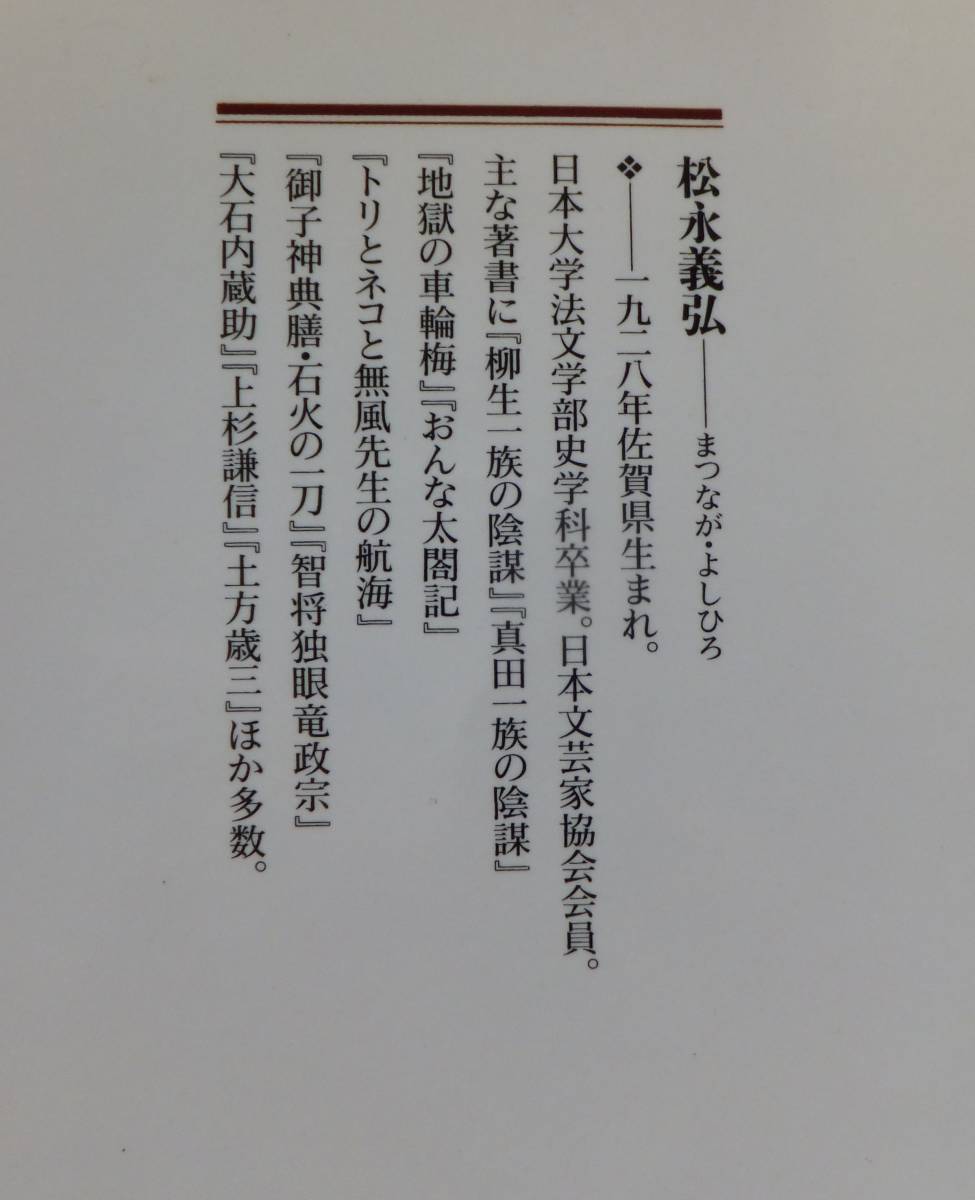 松永義弘――まつなが・よしひろ
❖――一九二八年佐賀県生まれ。
日本大学法文学部史学科卒業。日本文芸家協会会員。
主な著書に『柳生一族の陰謀』『真田一族の陰謀』
『地獄の車輪梅』『おんな太閤記』
『トリとネコと無風先生の航海』
『御子神典膳・石火の一刀』『智将独眼竜政宗』
『大石内蔵助』『上杉謙信』『土方歳三』ほか多数。